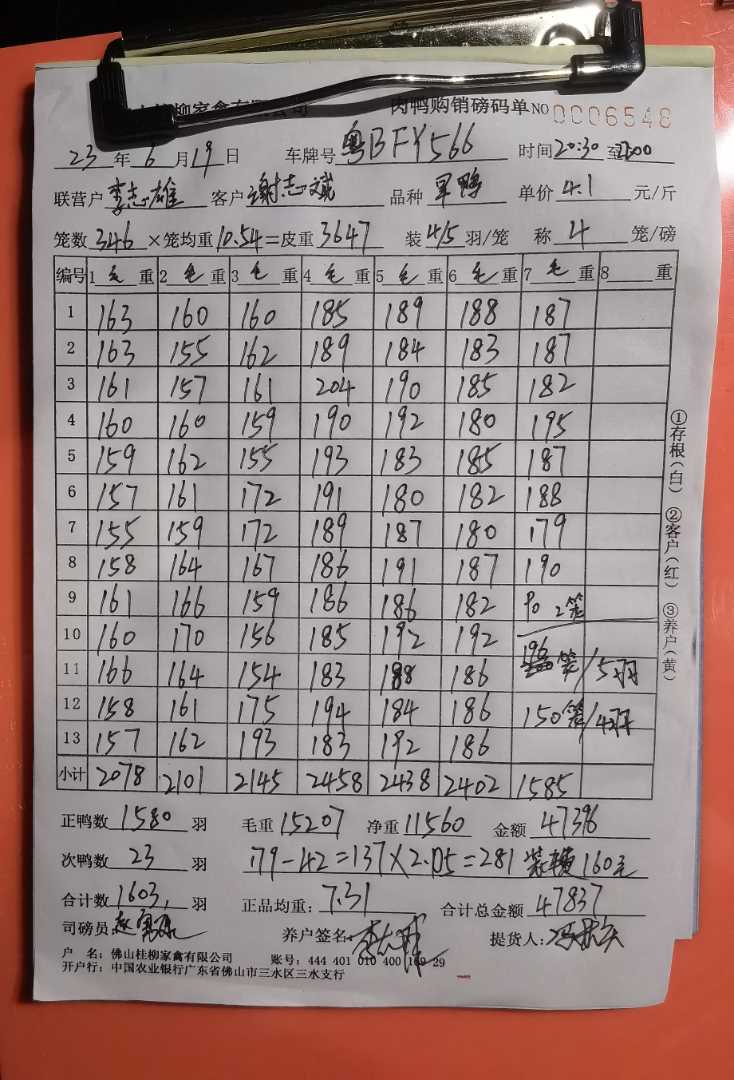 柳家禽有限公司 肉鸭购销磅码单 NO 0006548
23 年 6 月 19 日 车牌号 粤BFY566 时间 20:30 至
联营户 李志雄 客户 谢志斌 品种 旱鸭 单价 4.1 元/斤
笼数 346 ×笼均重 10.54 =皮重 3647 装 4/5 羽/笼 称 4 笼/磅
编号 1 毛 重 2 毛 重 3 毛 重 4 毛 重 5 毛 重 6 毛 重 7 毛 重 8 重
1 163 160 160 185 189 188 187
2 163 155 162 189 184 183 187
3 161 157 161 204 190 185 182
4 160 160 159 190 192 180 195
5 159 162 155 193 183 185 187
6 157 161 172 191 180 182 188
7 155 159 172 189 187 180 179
8 158 164 167 186 191 187 190
9 161 166 159 186 186 182 90 2笼
10 160 170 156 185 192 192
11 166 164 154 183 188 186 196笼/5羽
12 158 161 175 194 184 186 150笼/4羽
13 157 162 193 183 192 186
小计 2078 2101 2145 2458 2438 2402 1585
正鸭数 1580 羽 毛重 15207 净重 11560 金额 47396
次鸭数 23 羽 179-42=137×2.05=281 160元
合计数 1603, 羽 正品均重: 7.31 合计总金额 47837
司磅员: 养户签名: 提货人:
户 名: 佛山桂柳家禽有限公司 账号: 444 401 010 400 169 29
开户行: 中国农业银行广东省佛山市三水区三水支行
①存根(白) ②客户(红) ③养户(黄)